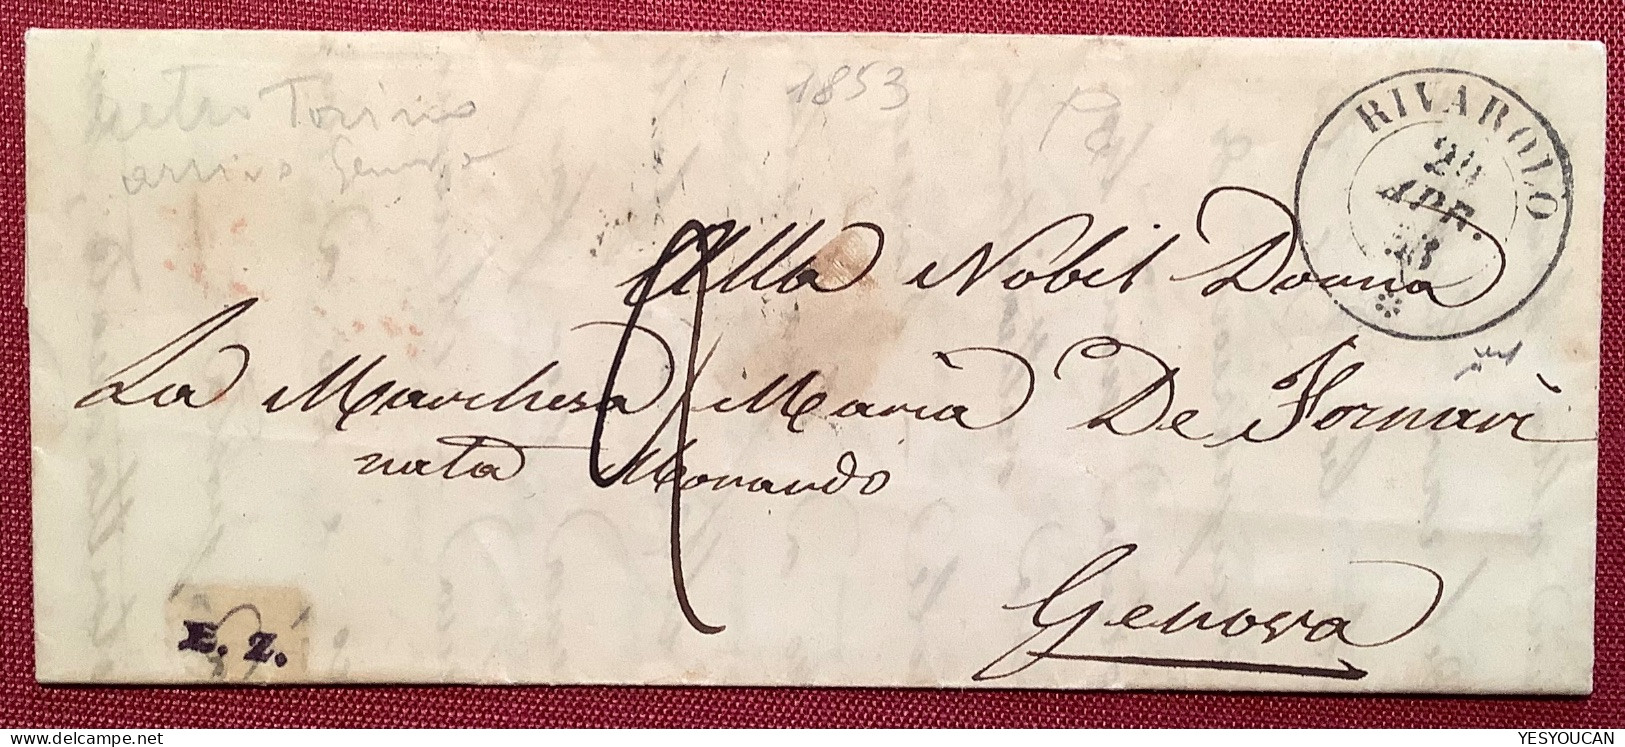 retro Torino
arrivo Genova
1853
RIVAROLO
APR.
53
Alla Nobil Donna
La Marchesa Maria De Fornari
nata Morando
Genova
E. Z.
delcampe.net
YESYOUCAN